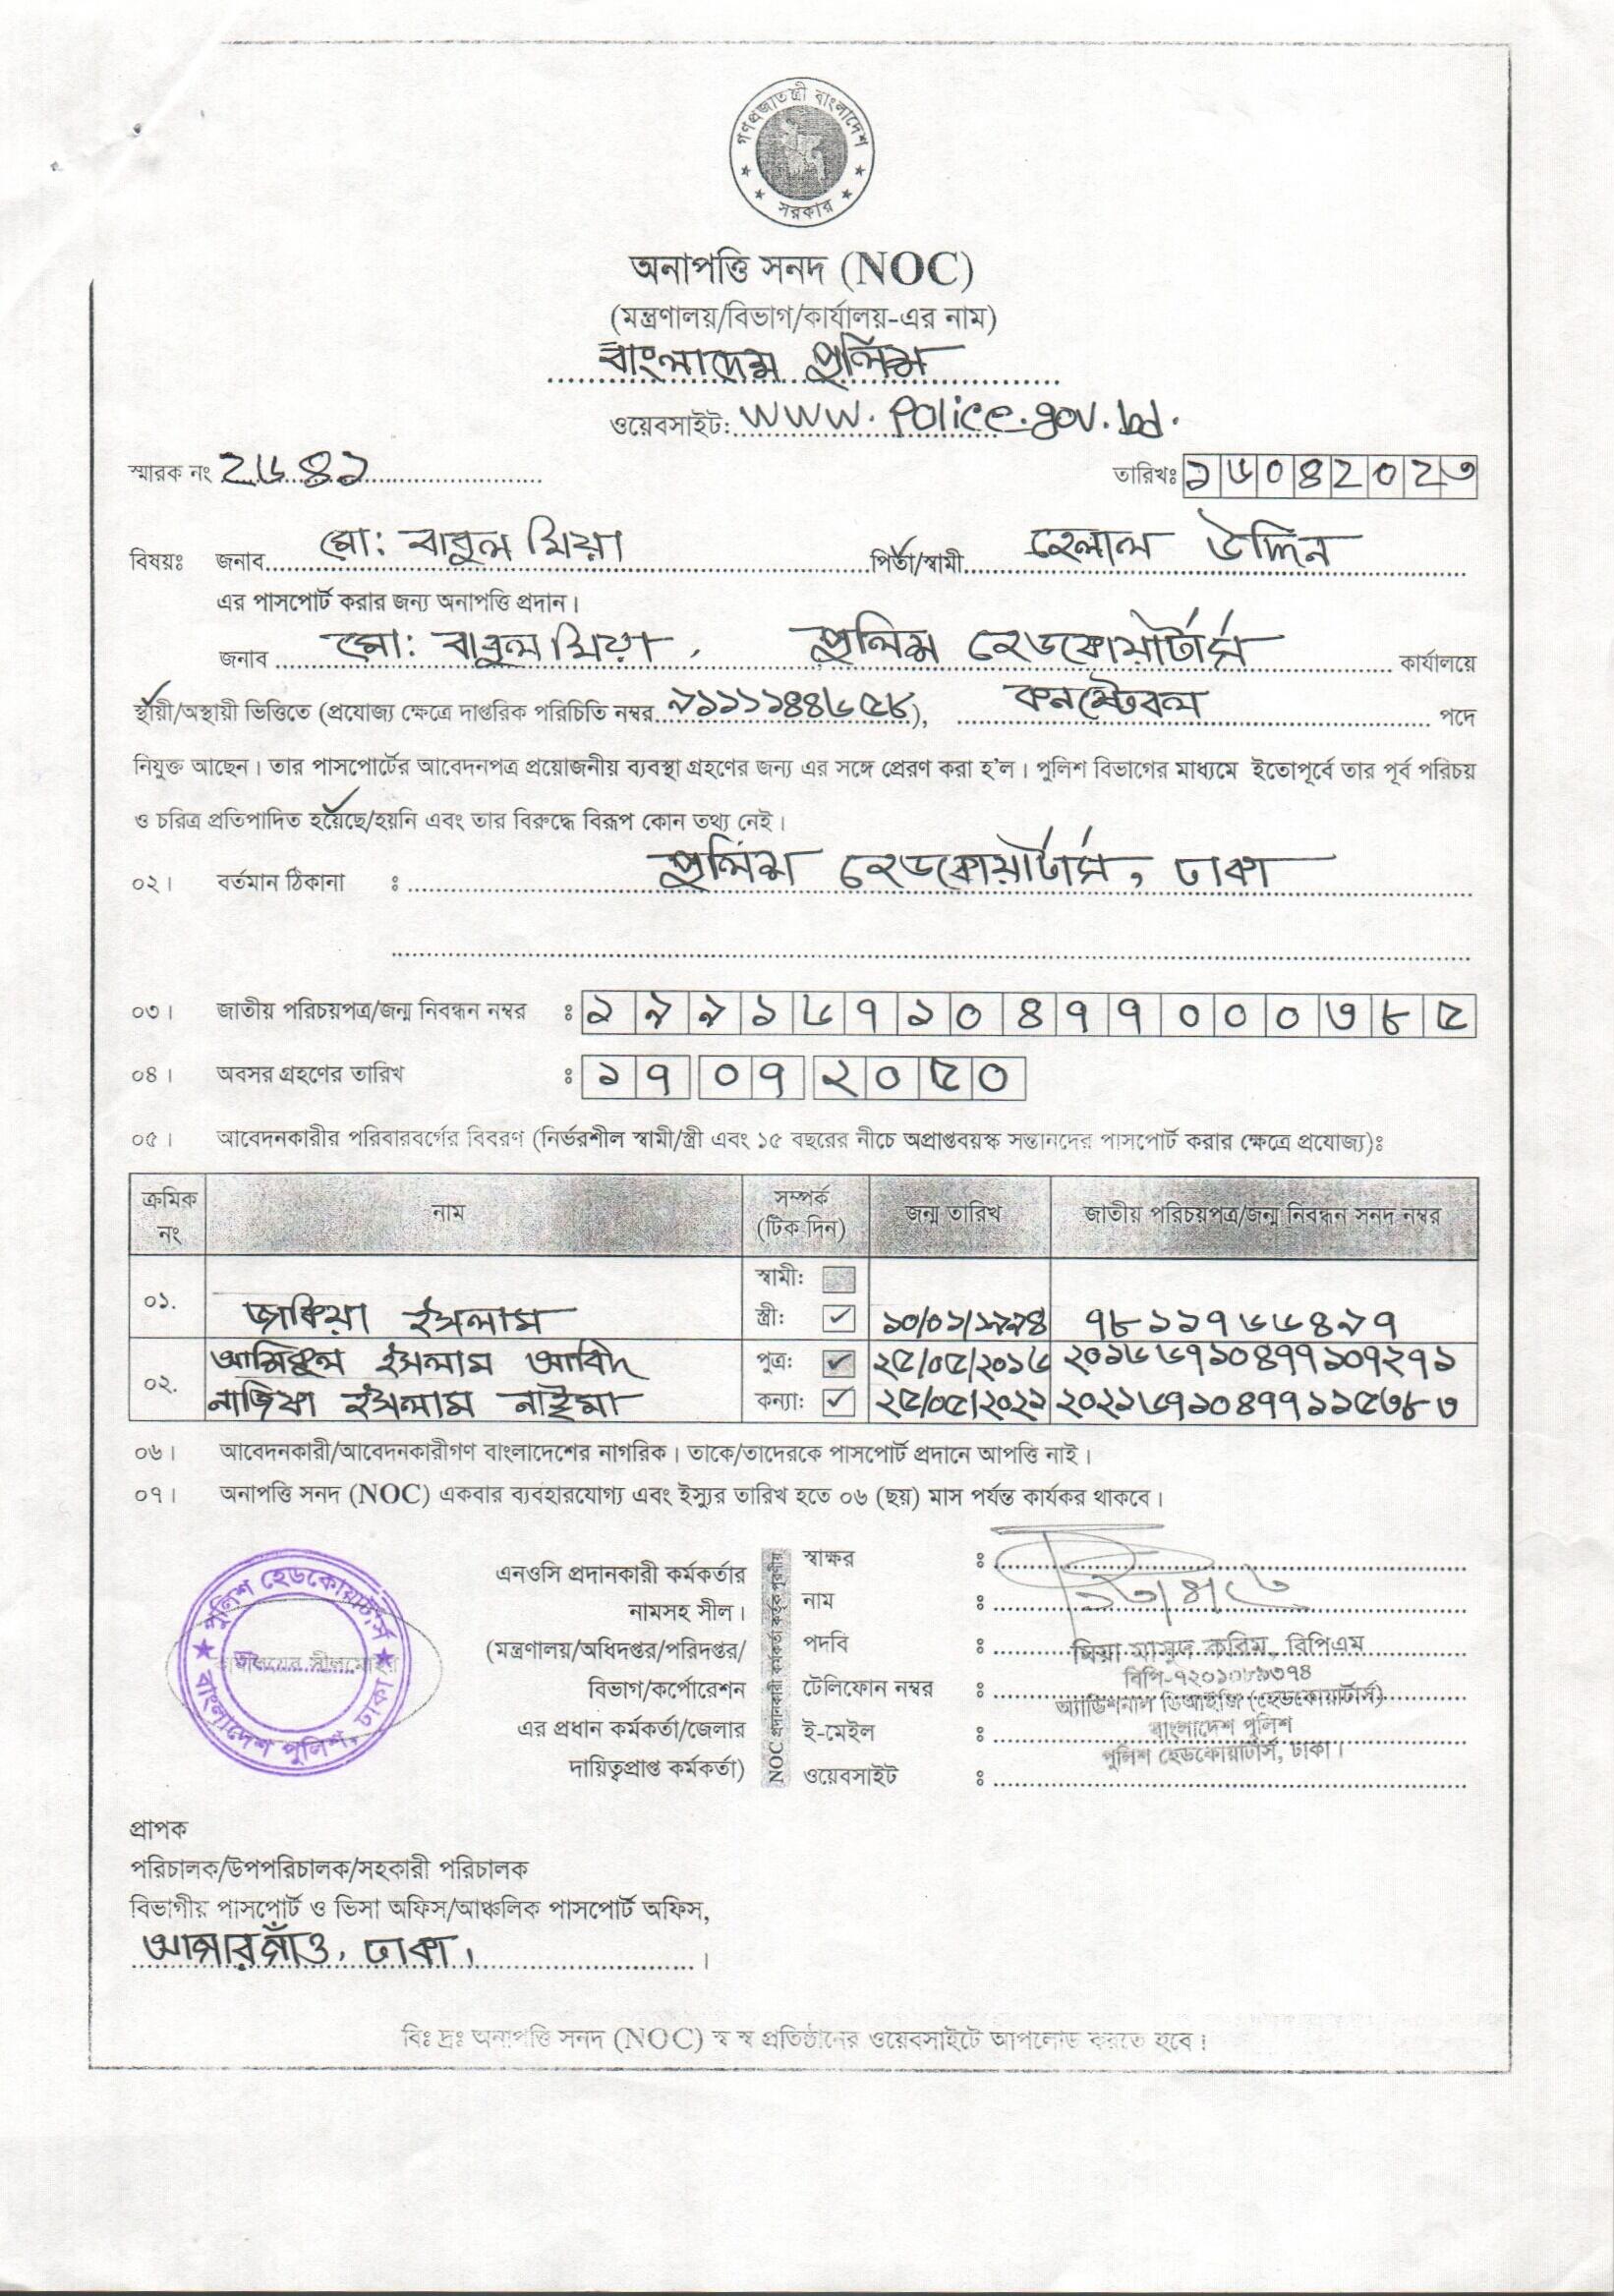 গণপ্রজাতন্ত্রী বাংলাদেশ
সরকার
অনাপত্তি সনদ (NOC)
(মন্ত্রণালয়/বিভাগ/কার্যালয়-এর নাম)
বাংলাদেশ পুলিশ
ওয়েবসাইট: www.police.gov.bd.
স্মারক নং ২৬৪১
তারিখঃ ১৬০৪২০২৩
বিষয়ঃ জনাব মো: বাবুল মিয়া পিতা/স্বামী হেলাল উদ্দিন
এর পাসপোর্ট করার জন্য অনাপত্তি প্রদান।
জনাব মো: বাবুল মিয়া, পুলিশ হেডকোয়ার্টার্স কার্যালয়ে
স্থায়ী/অস্থায়ী ভিত্তিতে (প্রযোজ্য ক্ষেত্রে দাপ্তরিক পরিচিতি নম্বর ৯১১১১৪৪৬৫৮), কনস্টেবল পদে
নিযুক্ত আছেন। তার পাসপোর্টের আবেদনপত্র প্রয়োজনীয় ব্যবস্থা গ্রহণের জন্য এর সঙ্গে প্রেরণ করা হ'ল। পুলিশ বিভাগের মাধ্যমে ইতোপূর্বে তার পূর্ব পরিচয়
ও চরিত্র প্রতিপাদিত হয়েছে/হয়নি এবং তার বিরুদ্ধে বিরূপ কোন তথ্য নেই।
০২। বর্তমান ঠিকানা ঃ পুলিশ হেডকোয়ার্টার্স, ঢাকা
০৩। জাতীয় পরিচয়পত্র/জন্ম নিবন্ধন নম্বর ঃ ১৯৯১৬৭১০৪৭৭০০০৩৮৫
০৪। অবসর গ্রহণের তারিখ ঃ ১৭ ০৭ ২০৫০
০৫। আবেদনকারীর পরিবারবর্গের বিবরণ (নির্ভরশীল স্বামী/স্ত্রী এবং ১৫ বছরের নীচে অপ্রাপ্তবয়স্ক সন্তানদের পাসপোর্ট করার ক্ষেত্রে প্রযোজ্য)ঃ
ক্রমিক নং নাম সম্পর্ক (টিক দিন) জন্ম তারিখ জাতীয় পরিচয়পত্র/জন্ম নিবন্ধন সনদ নম্বর
স্বামী:
০১. জাকিয়া ইসলাম স্ত্রী: ✓ ১০/০১/১৯৯৪ ৭৮১১৭৬৬৪৯৭
আমিরুল ইসলাম আবিদ পুত্র: ✓ ২৫/০৫/২০১৬ ২০১৬৬৭১০৪৭৭১০৭২৭১
০২. নাজিফা ইসলাম নাইমা কন্যা: ✓ ২৫/০৫/২০২১ ২০২১৬৭১০৪৭৭১১৫৩৮৩
০৬। আবেদনকারী/আবেদনকারীগণ বাংলাদেশের নাগরিক। তাকে/তাদেরকে পাসপোর্ট প্রদানে আপত্তি নাই।
০৭। অনাপত্তি সনদ (NOC) একবার ব্যবহারযোগ্য এবং ইস্যুর তারিখ হতে ০৬ (ছয়) মাস পর্যন্ত কার্যকর থাকবে।
পুলিশ হেডকোয়ার্টার্স
বাংলাদেশ পুলিশ, ঢাকা
কার্যালয়ের সীলমোহর
এনওসি প্রদানকারী কর্মকর্তার
নামসহ সীল।
(মন্ত্রণালয়/অধিদপ্তর/পরিদপ্তর/
বিভাগ/কর্পোরেশন
এর প্রধান কর্মকর্তা/জেলার
দায়িত্বপ্রাপ্ত কর্মকর্তা)
NOC প্রদানকারী কর্মকর্তা কর্তৃক পূরণীয়
স্বাক্ষর ঃ
নাম ঃ
পদবি ঃ মিয়া মাসুদ করিম, বিপিএম
বিপি-৭২০১০৮৯৩৭৪
টেলিফোন নম্বর ঃ অ্যাডিশনাল ডিআইজি (হেডকোয়ার্টার্স)
ই-মেইল ঃ বাংলাদেশ পুলিশ
পুলিশ হেডকোয়ার্টার্স, ঢাকা।
ওয়েবসাইট ঃ
প্রাপক
পরিচালক/উপপরিচালক/সহকারী পরিচালক
বিভাগীয় পাসপোর্ট ও ভিসা অফিস/আঞ্চলিক পাসপোর্ট অফিস,
আগারগাঁও, ঢাকা,।
বিঃ দ্রঃ অনাপত্তি সনদ (NOC) স্ব স্ব প্রতিষ্ঠানের ওয়েবসাইটে আপলোড করতে হবে।